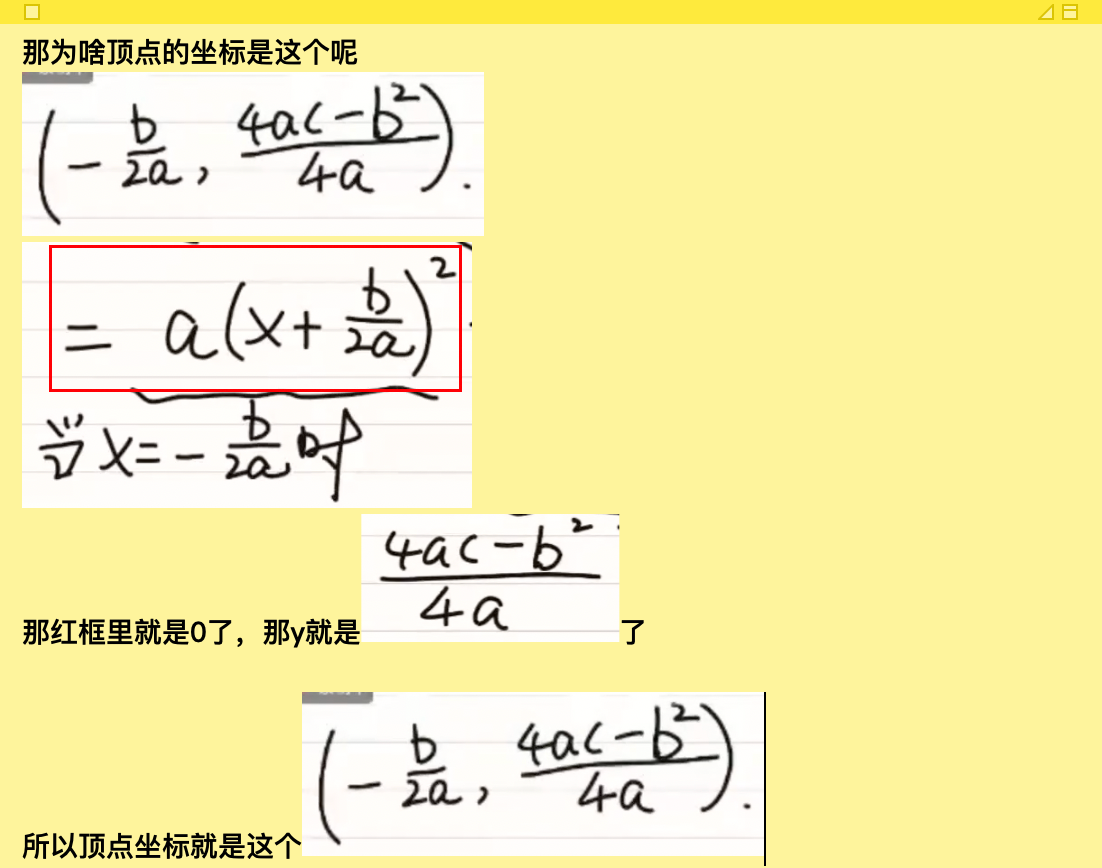 那为啥顶点的坐标是这个呢
(-b/2a, (4ac-b²)/4a).
= a(x+b/2a)²
当x=-b/2a时
那红框里就是0了，那y就是(4ac-b²)/4a了
所以顶点坐标就是这个(-b/2a, (4ac-b²)/4a).